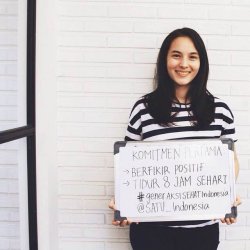 KOMITMEN PERTAMA
→ BERFIKIR POSITIF
→ TIDUR 8 JAM SEHARI
# generAKSI SEHAT Indonesia
@SATU_Indonesia